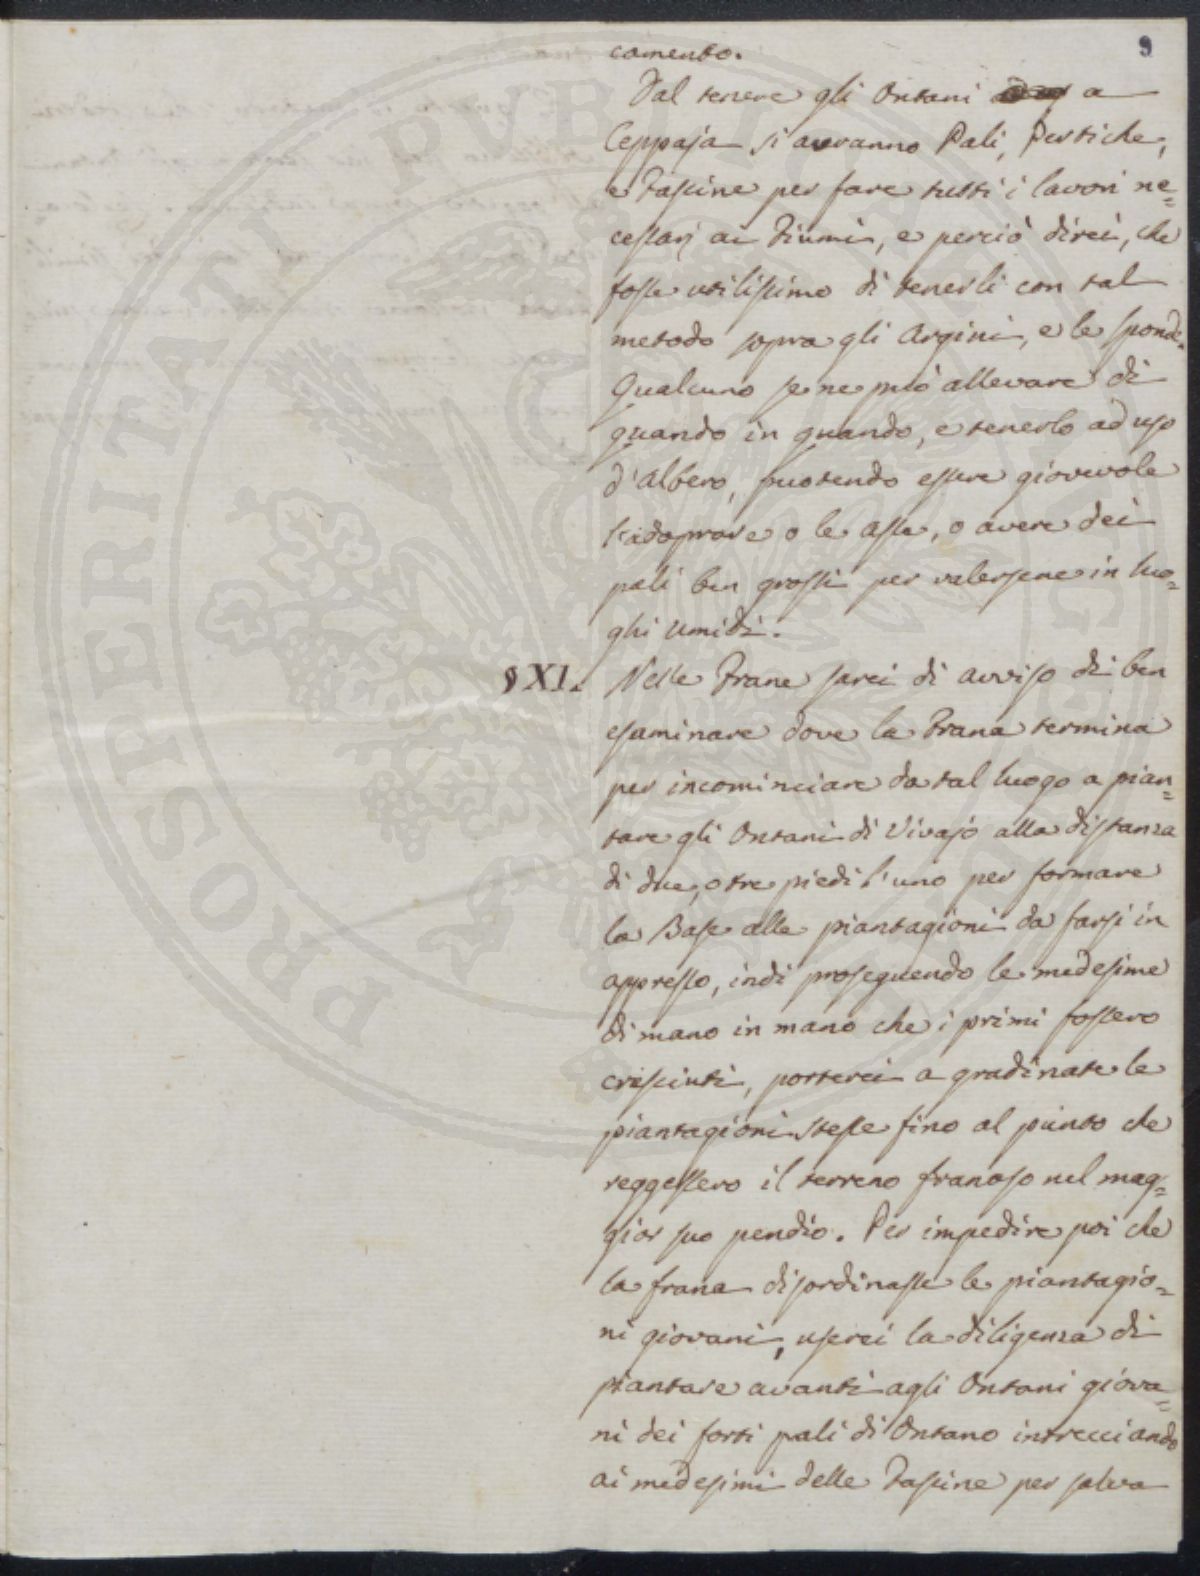 9
camento.
Dal tenere gli Ontani a
Ceppaja si avranno Pali, Pertiche,
e Fascine per fare tutti i lavori ne=
cessarj ai Fiumi, e perciò direi, che
fosse utilissimo di tenerli con tal
metodo sopra gli Argini, e le sponde.
Qualcuno se ne può allevare di
quando in quando, e tenerlo ad uso
d'Albero, puotendo essere giovevole
l'adoprare o le asse, o avere dei
pali ben grossi per valersene in luo=
ghi umidi.
§ XI. Nelle Frane sarei di avviso di ben
esaminare dove la Frana termina
per incominciare da tal luogo a pian=
tare gli Ontani di Vivajo alla distanza
di due, o tre piedi l'uno per formare
la Base alle piantagioni da farsi in
appresso, indi proseguendo le medesime
di mano in mano che i primi fossero
cresciuti, porterei a gradinate le
piantagioni stesse fino al punto che
reggessero il terreno franoso nel mag=
gior suo pendio. Per impedire poi che
la frana disordinasse le piantagio=
ni giovani, userei la diligenza di
piantare avanti agli Ontani giova=
ni dei forti pali di Ontano intrecciando
ai medesimi delle Fascine per salva
PROSPERITATI PUBLICAE AUGENDAE